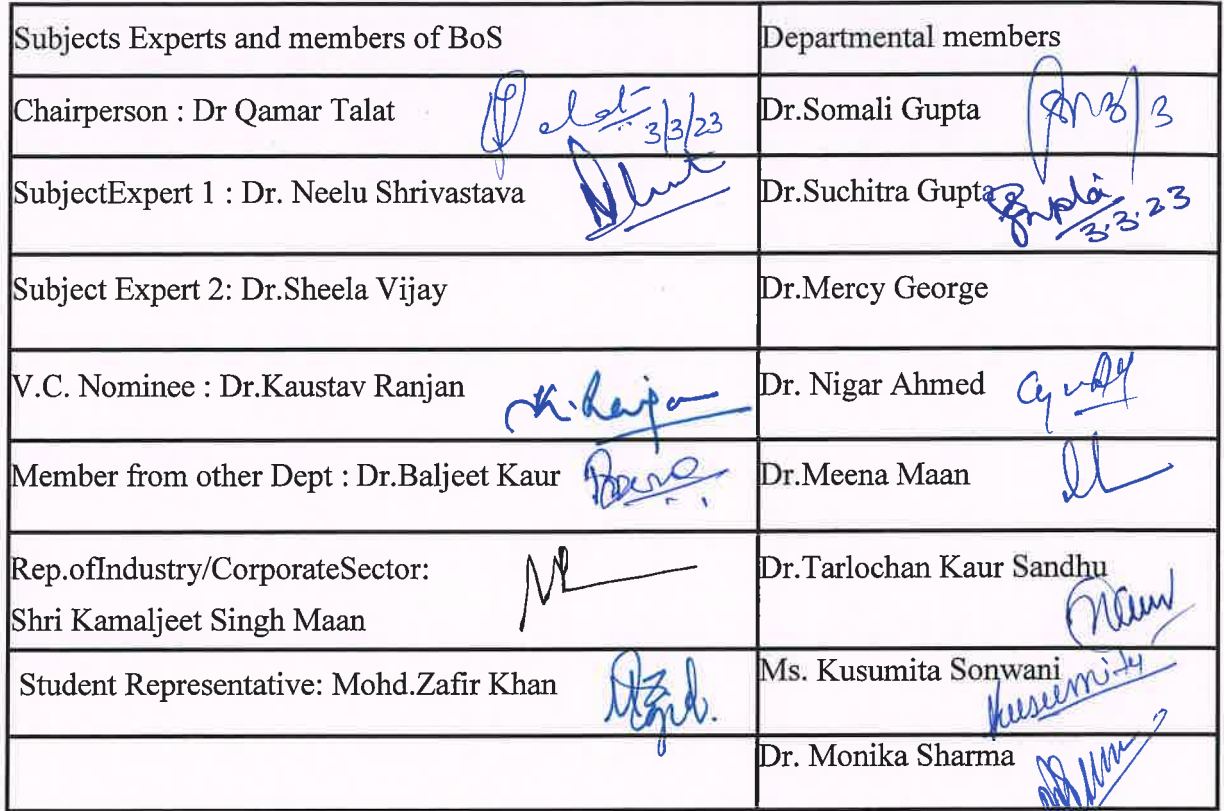 Subjects Experts and members of BoS
Departmental members
Chairperson : Dr Qamar Talat
3/3/23
Dr.Somali Gupta
SubjectExpert 1 : Dr. Neelu Shrivastava
Dr.Suchitra Gupta
Gupta
3.3.23
Subject Expert 2: Dr.Sheela Vijay
Dr.Mercy George
V.C. Nominee : Dr.Kaustav Ranjan
Dr. Nigar Ahmed
Member from other Dept : Dr.Baljeet Kaur
Dr.Meena Maan
Rep.ofIndustry/CorporateSector:
Shri Kamaljeet Singh Maan
Dr.Tarlochan Kaur Sandhu
Student Representative: Mohd.Zafir Khan
Ms. Kusumita Sonwani
Dr. Monika Sharma